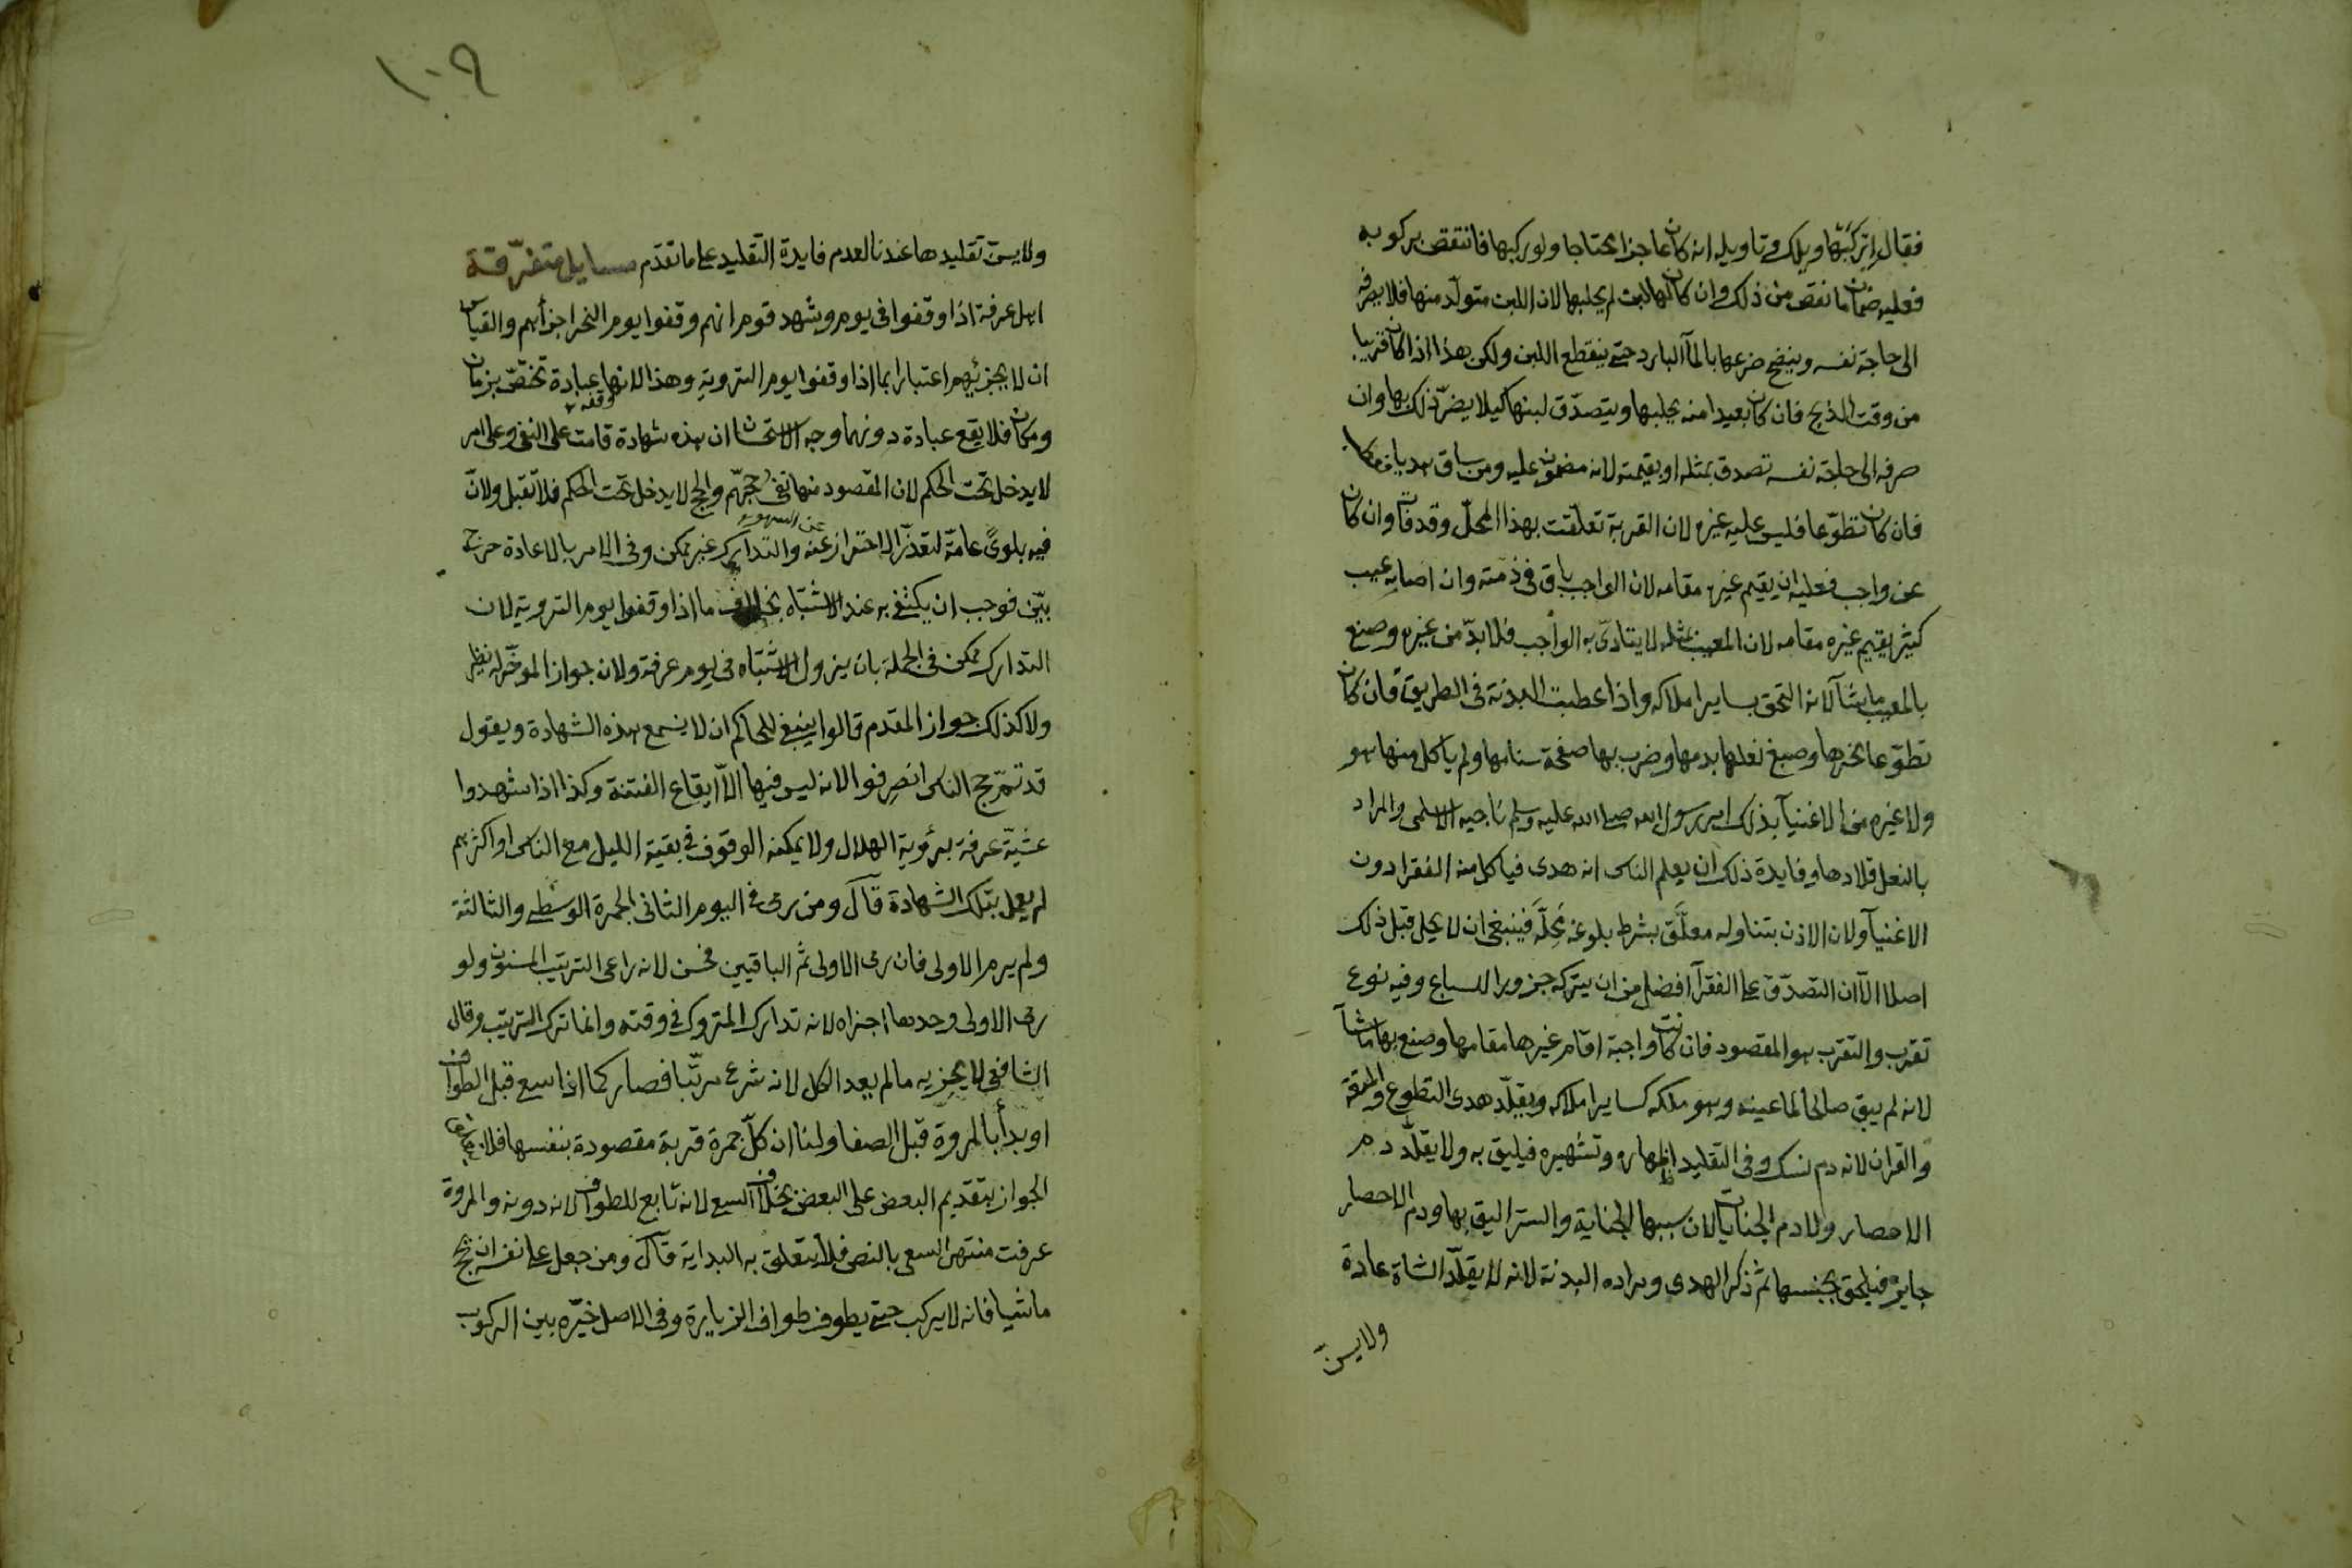 فقال اركبها ويلك وتاويله انه كان عاجزا محتاجا ولو ركبها فانتقص بركوبه
فعليه ضمان ما نقص من ذلك وان كان لها لبن لم يحلبها لان اللبن متولّد منها فلا يصرفه
الى حاجة نفسه وينضح ضرعها بالمآ البارد حتى ينقطع اللبن ولكن هذا اذا كان قريبا
من وقت الذبح فان كان بعيدا منه يحلبها ويتصدّق لبنها كيلا يضرّ ذلك بها وان
صرفه الى حاجة نفسه تصدق بمثله او بقيمته لانه مضمون عليه ومن ساق هديا فعطب
فان كان تطوّعا فليس عليه غيره لان القربة تعلّقت بهذا المحلّ وقد فات وان كان
عن واجب فعليه ان يقيم غيره مقامه لان الواجب باق فى ذمته وان اصابه عيب
كثير يقيم غيره مقامه لان المعيب بمثله لا يتادّى به الواجب فلا بدّ من غيره وصنع
بالمعيب ما شآ لانه التحق بساير املاكه واذا عطبت البدنة فى الطريق فان كان
تطوّعا نحرها وصبغ نعلها بدمها وضرب بها صفحة سنامها ولم ياكل منها هو
ولا غيره من الاغنيآ بذلك امر رسول الله صلى الله عليه وسلم ناجيه الاسلمى والمراد
بالنعل قلادها وفايدة ذلك ان يعلم الناس انه هدى فياكل منه الفقرا دون
الاغنيآ ولان الاذن بتناوله معلّق بشرط بلوغه محِلّه فينبغى ان لا يحل قبل ذلك
اصلا الّا ان التصدّق على الفقرآ افضل من ان يتركه جزورا للسباع وفيه نوع
تقرب والتقرب هو المقصود فان كانت واجبة اقام غيرها مقامها وصنع بها ما شآ
لانه لم يبق صالحا لما عينه وهو ملكه كساير املاكه ويقلّد هدى التطوع والمتعة
والقران لانه دم نسك وفى التقليد اظهاره وتشهيره فيليق به ولا يقلّد دم
الاحصار ولا دم الجنايات لان سببها الجناية والستر اليق بها ودم الاحصار
جابر فيلحق بجنسها ثم ذكر الهدى ومراده البدنة لانه لا يقلّد الشاة عادة
ولا يسنّ
١٠٩
ولا يسنّ تقليدها عندنا لعدم فايدة التقليد على ما تقدّم مسايل متفرّقة
اهل عرفة اذا وقفوا فى يوم وشهد قوم انهم وقفوا يوم النحر اجزأهم والقياس
ان لا يجزئهم اعتبارا بما اذا وقفوا يوم التروية وهذا لانها عبادة تختصّ بزمان
ومكان فلا يقع عبادة دونهما وجه الاستحسان ان هذه شهادة قامت على النفى وعلى امر
لا يدخل تحت الحكم لان المقصود منها نفى حجّهم والحج لا يدخل تحت الحكم فلا تقبل ولانّ
فيه بلوىً عامّة لتعذّر الاحتراز عنه والتدارك غير ممكن وفى الامر بالاعادة حرج
بيّن فوجب ان يكتفى به عند الاشتباه بخلاف ما اذا وقفوا يوم التروية لان
التدارك ممكن فى الجملة بان يزول الاشتباه فى يوم عرفة ولان جواز الموخّر له نظير
ولا كذلك جواز المقدم قالوا ينبغى للحاكم ان لا يسمع هذه الشهادة ويقول
قد تمّ حج الناس انصرفوا لانه ليس فيها الّا ايقاع الفتنة وكذا اذا شهدوا
عشيّة عرفة برؤية الهلال ولا يمكنه الوقوف فى بقية الليل مع الناس او اكثرهم
لم يعمل بتلك الشهادة قال ومن رمى فى اليوم الثانى الجمرة الوسطى والثالثة
ولم يرم الاولى فان رمى الاولى ثم الباقيين فحسن لانه راعى الترتيب المسنون ولو
رمى الاولى وحدها اجزاه لانه تدارك المتروك فى وقته وانما ترك الترتيب وقال
الشافعى لا يجزيه ما لم يعد الكل لانه شرع مرتّبا فصار كما اذا سعى قبل الطواف
او بدأ بالمروة قبل الصفا ولنا ان كلّ جمرة قربة مقصودة بنفسها فلا
الجواز بتقديم البعض على البعض بخلاف السعى لانه تابع للطواف لانه دونه والمروة
عرفت منتهى السعى بالنص فلا يتعلق به البداية قال ومن جعل على نفسه ان يحج
ماشيا فانه لا يركب حتى يطوف طواف الزيارة وفى الاصل خيّره بين الركوب